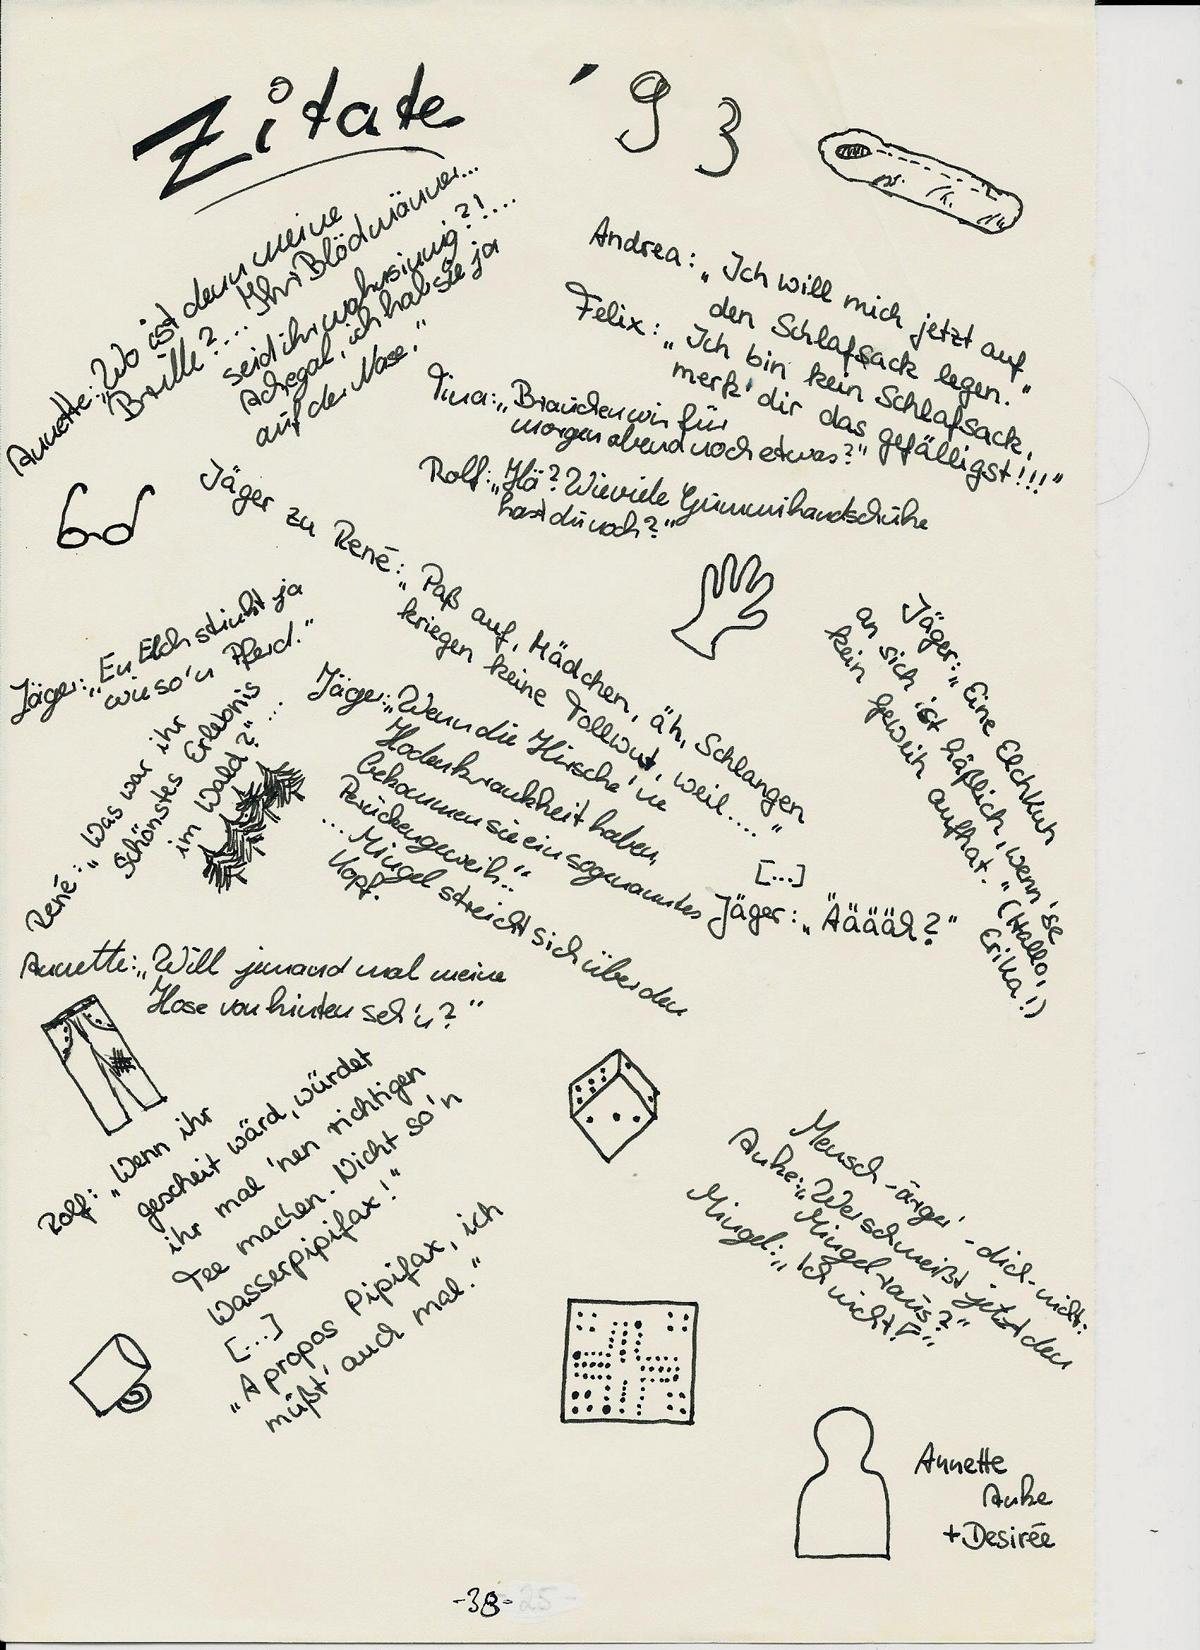 Zitate '93
Annette: „Wo ist denn meine
Brille?... Ihr Blödmänner...
seid ihr wahnsinnig?!...
Ach egal, ich hab sie ja
auf der Nase."
Andrea: „Ich will mich jetzt auf
den Schlafsack legen."
Felix: „Ich bin kein Schlafsack,
merk' dir das gefälligst!!!"
Tina: „Brauchen wir für
morgen abend noch etwas?"
Rolf: „Hä? Wieviele Gummihandschuhe
hast du noch?"
Jäger zu René: „Paß auf, Mädchen, äh, Schlangen
kriegen keine Tollwut, weil...."
[...]
Jäger: „Ääääh?"
Jäger: „Eine Elchkuh
an sich ist häßlich, wenn'se
kein Geweih aufhat." (Hallo,
Erika!)
Jäger: „En Elch stinkt ja
wie so'n Pferd."
René: „Was war ihr
schönstes Erlebnis
im Wald?"...
Jäger: „Wenn die Hirsche 'ne
Hodenkrankheit haben,
bekommen sie ein sogenanntes
Perückengeweih.."
....Mingel streicht sich über den
Kopf.
Annette: „Will jemand mal meine
Hose von hinten seh'n?"
Rolf: „Wenn ihr
gescheit wärd, würdet
ihr mal 'nen richtigen
Tee machen. Nicht so'n
Wasserpipifax!"
[...]
„Apropos Pipifax, ich
müßt' auch mal."
Mensch-ärger'-dich-nicht:
Anke: „Wer schmeißt jetzt den
Mingel raus?"
Mingel: „Ich nicht!"
Annette
Anke
+Desirée
-38-
25-